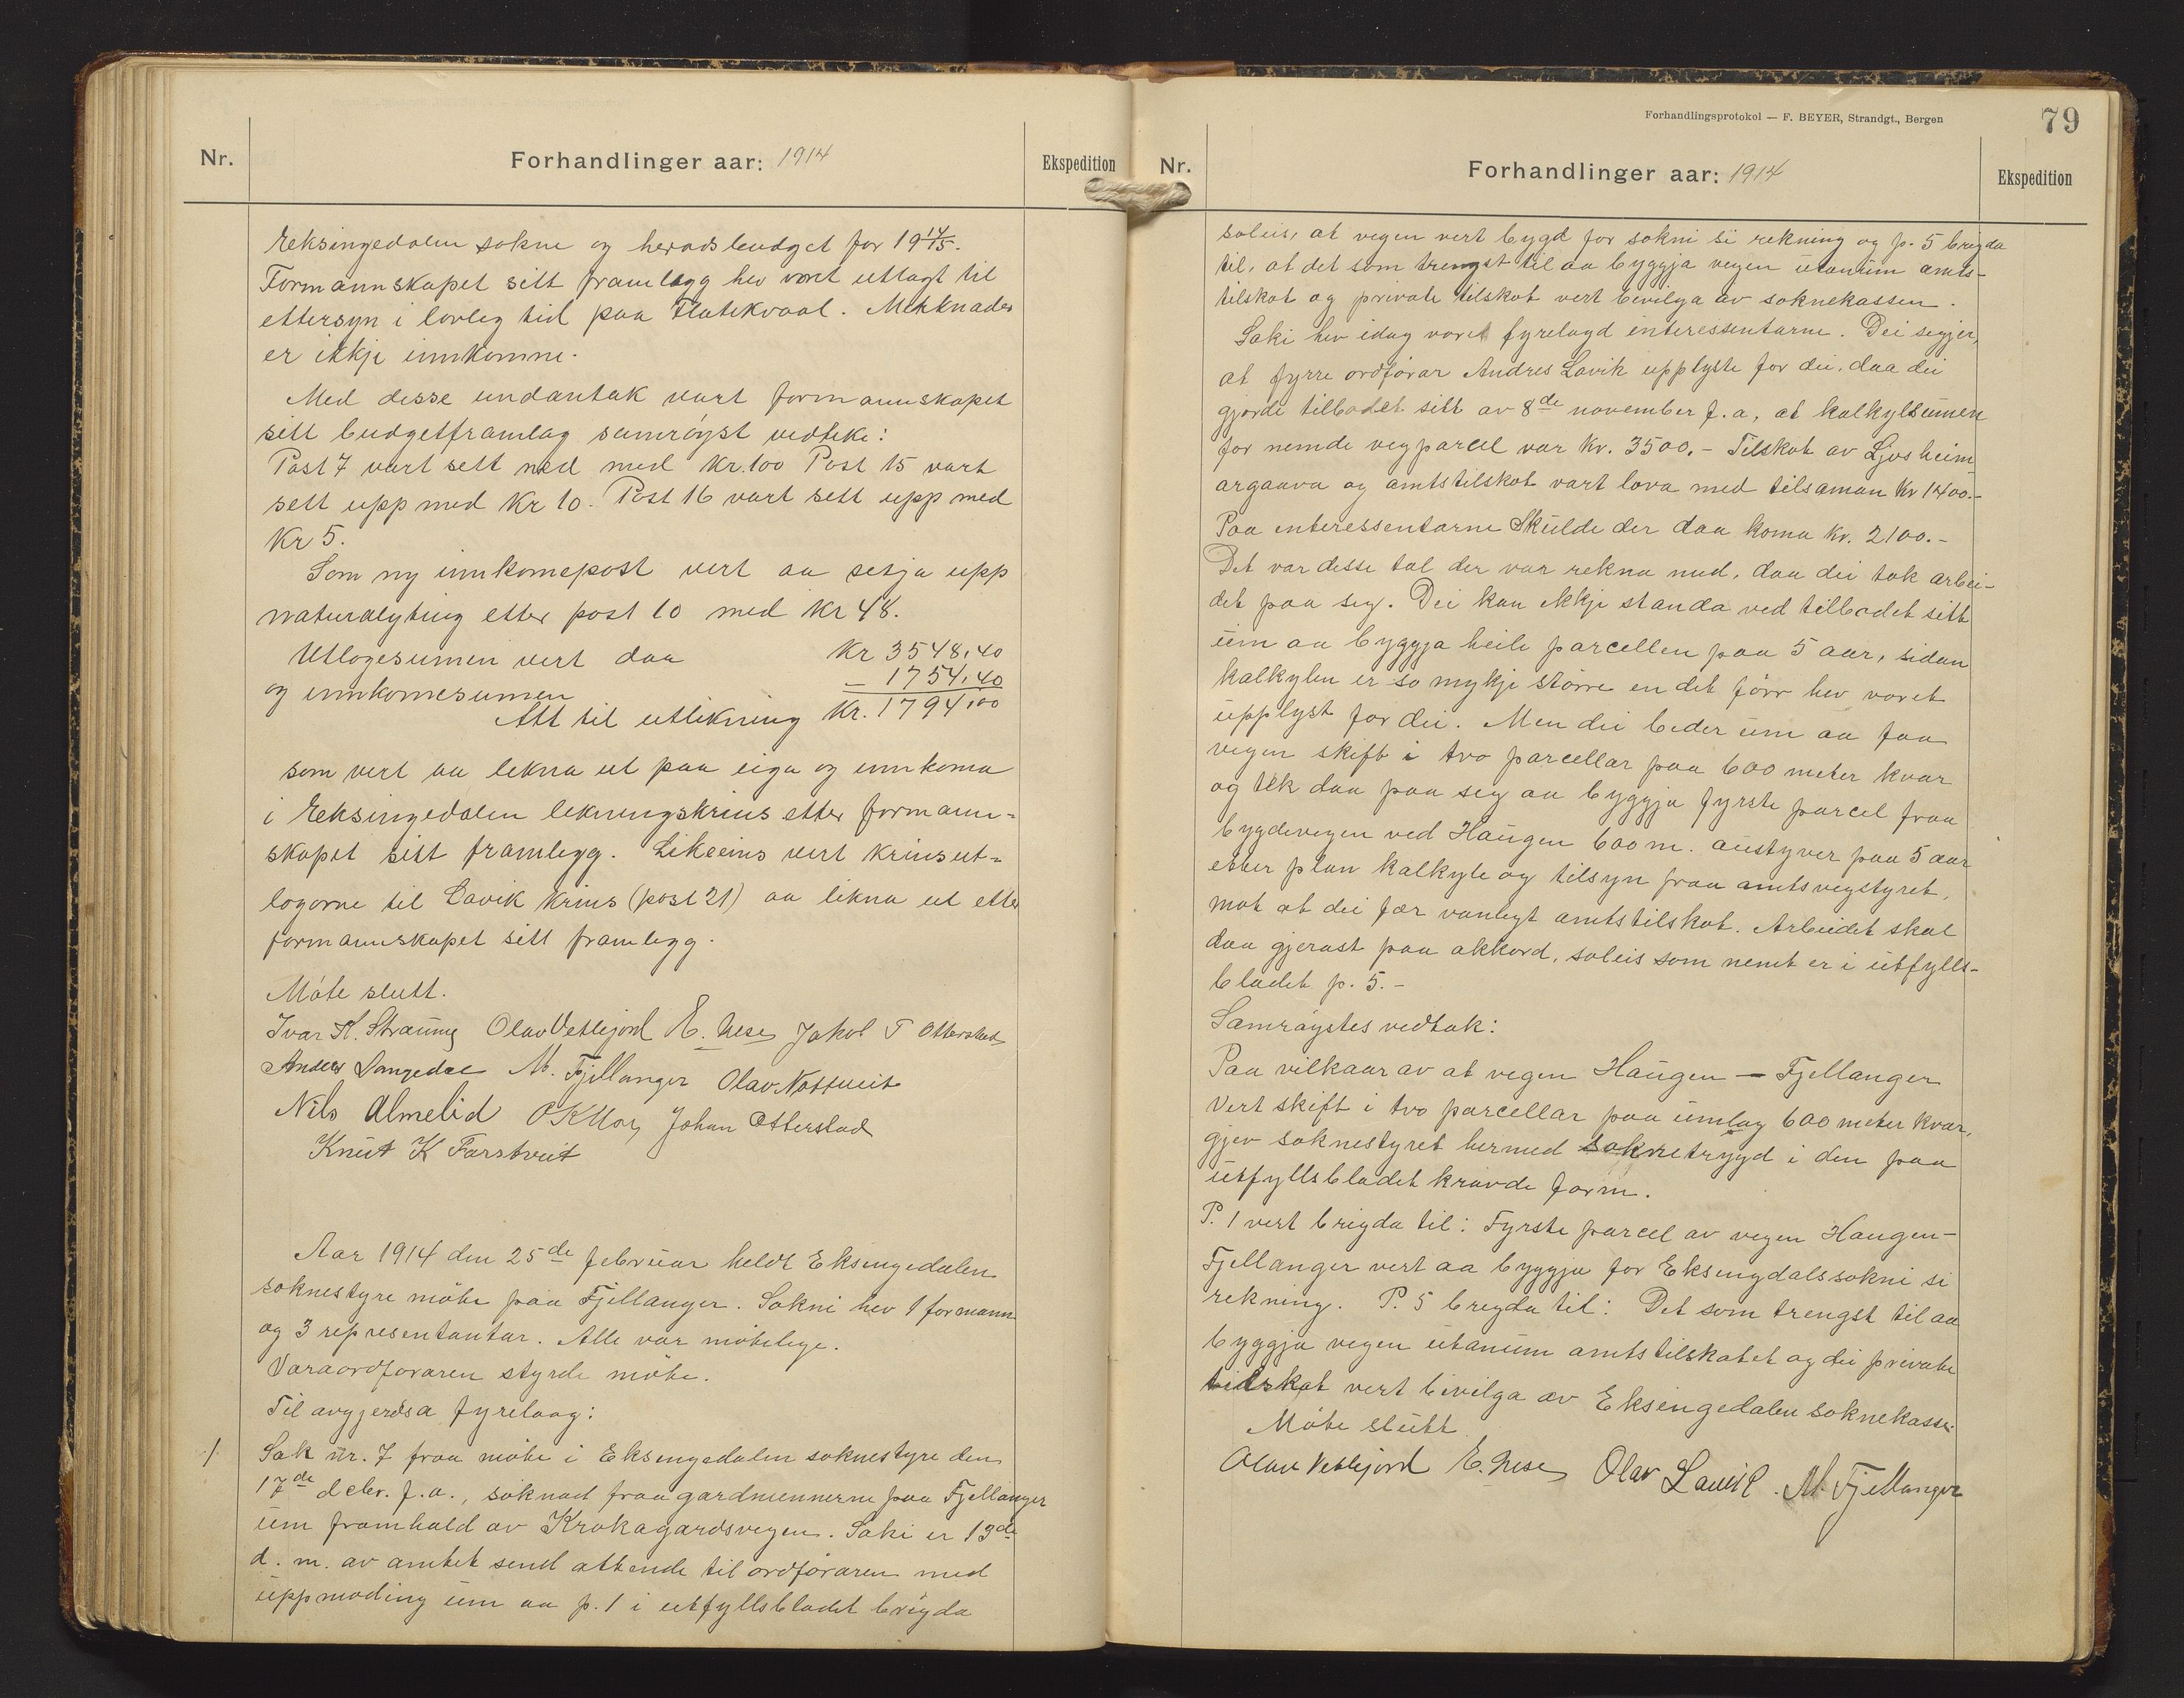 Nr.
Forhandlinger aar: 1914
Ekspedition
Eksingedalen sokne og heradsbudget for 19 14/15.
Formannskapet sitt framlegg hev voret utlagt til
ettersyn i lovleg tid paa Flatekvaal. Merknader
er ikkje innkomne.
Med desse undantak vart formannskapet
sitt budgetframlag samröyst vedteke:
Post 7 vart sett ned med kr. 100 Post 15 vart
sett upp med kr 10. Post 16 vart sett upp med
kr 5.
Som ny innkomepost vert aa setja upp
naturalyting etter post 10 med kr 48.
Utlogesumen vert daa Kr 3548,40
og innkomesumen - 1754,40
Att til utlikning Kr. 1794,00
som vert aa lekna ut paa eiga og innkoma
i Eksingedalen lekningskrins etter formann-
skapet sitt framlegg. Likeeins vert krinsut-
logorne til Lavik krins (post 21) aa likna ut etter
formannskapet sitt framlegg.
Möte slutt.
Ivar K. Straume Olav Vetlejord E. Nese Jakob T Otterstad
Anders Langedal M. Fjellanger Olav Nottveit
Nils Almelid O K Mo Johan Otterstad
Knut K Farstveit
Aar 1914 den 25de februar heldt Eksingedalen
soknestyre möte paa Fjellanger. Sokni hev 1 formann
og 3 representantar. Alle var mötelege.
Varaordforaren styrde möte.
Til avgjerdsa fyrelaag:
1 Sak nr. 7 fraa möte i Eksingedalen soknestyre den
17de debr. f.a., söknad fraa gardmennerne paa Fjellanger
um framhald av Krokagardsvegen. Saki er 13de
d. m. av amtet send attende til ordföraren med
uppmoding um aa p. 1 i utfyllsbladet brigda
Forhandlingsprotokol — F. BEYER, Strandgt., Bergen
79
Nr.
Forhandlinger aar: 1914
Ekspedition
soleis, at vegen vert bygd for sokni si rekning og p. 5 brigda
til, at det som trengst til aa byggja vegen utanum amts-
tilskot og private tilskot vert bevilga av soknekassen.
Saki hev idag voret fyrelagd interessentarne. Dei segjer,
at fyrre ordförar Andres Lavik upplyste for dei, daa dei
gjorde tilbodet sitt av 8de november f.a, at kalkylsumen
for nemde vegparcel var Kr. 3500.- Tilskot av Ljosheim
argaava og amtstilskot vart lova med tilsaman Kr 1400.-
Paa interessentarne skulde der daa koma kr. 2100.-
Det var desse tal der var rekna med, daa dei tok arbei-
det paa seg. Dei kan ikkje standa ved tilbodet sitt
um aa byggja heile parcellen paa 5 aar, sidan
kalkylen er so mykje större en det förr hev voret
upplyst for dei. Men dei beder um aa faa
vegen skift i tvo parcellar paa 600 meter kvar
og tek daa paa seg aa byggja fyrste parcel fraa
bygdevegen ved Haugen 600 m. austyver paa 5 aar
etter plan kalkyle og tilsyn fraa amtsvegstyret,
mot at dei fær vanlegt amtstilskot. Arbeidet skal
daa gjerast paa akkord, soleis som nemt er i utfylls-
bladet p. 5.-
Samröystes vedtak:
Paa vilkaar av at vegen Haugen — Fjellanger
vert skift i tvo parcellar paa umlag 600 meter kvar,
gjev soknestyret hermed soknetrygd i den paa
utfyllsbladet kravde form.
P. 1 vert brigda til: Fyrste parcel av vegen Haugen-
Fjellanger vert aa byggja for Eksingdalssokni si
rekning. P. 5 brigda til: Det som trengst til aa
byggja vegen utanum amtstilskotet og dei private
tilskot vert bivilga av Eksingedalen soknekasse.
Möte slutt
Olav Vetlejord E. Nese Olav Lavik. M. Fjellanger